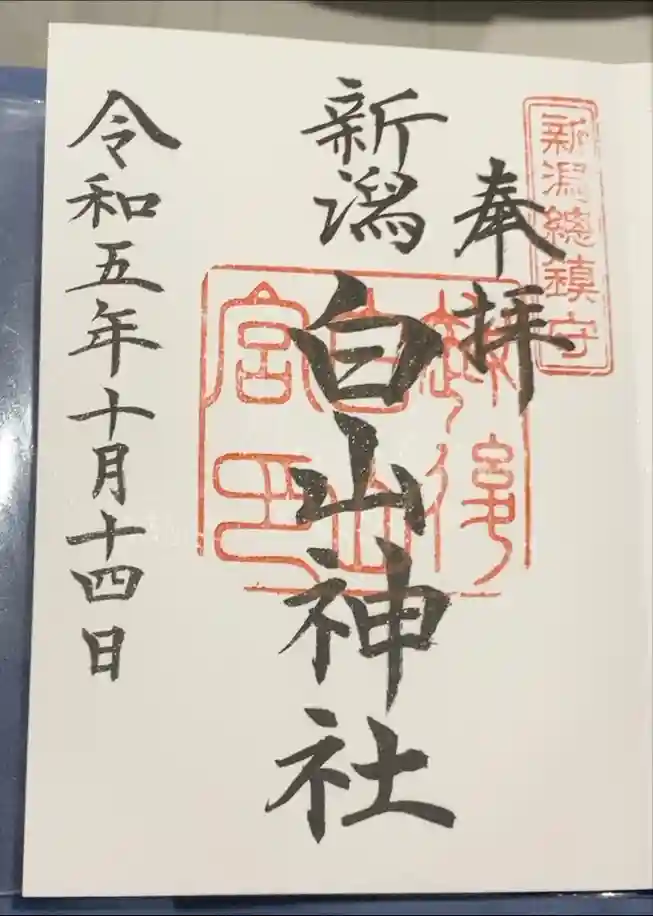 新潟總鎮守
奉拝
越後
白山
宮印
新潟白山神社
令和五年十月十四日